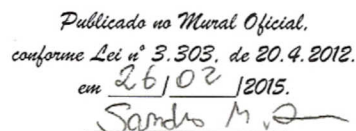 Publicado no Mural Oficial,
conforme Lei nº 3.303, de 20.4.2012.
em 26/02/2015.
Sandro M.